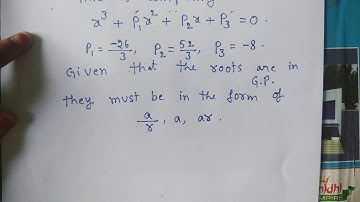 x³ + P₁x² + P₂x + P₃ = 0.
P₁ = -26/3, P₂ = 52/3, P₃ = -8.
Given that the roots are in G.P.
they must be in the form of
a/r, a, ar.